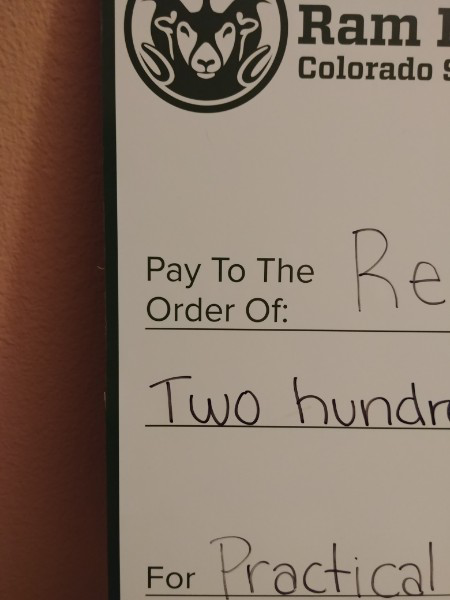 Ram
Colorado
Pay To The Re
Order Of:
Two hundr
For Practical